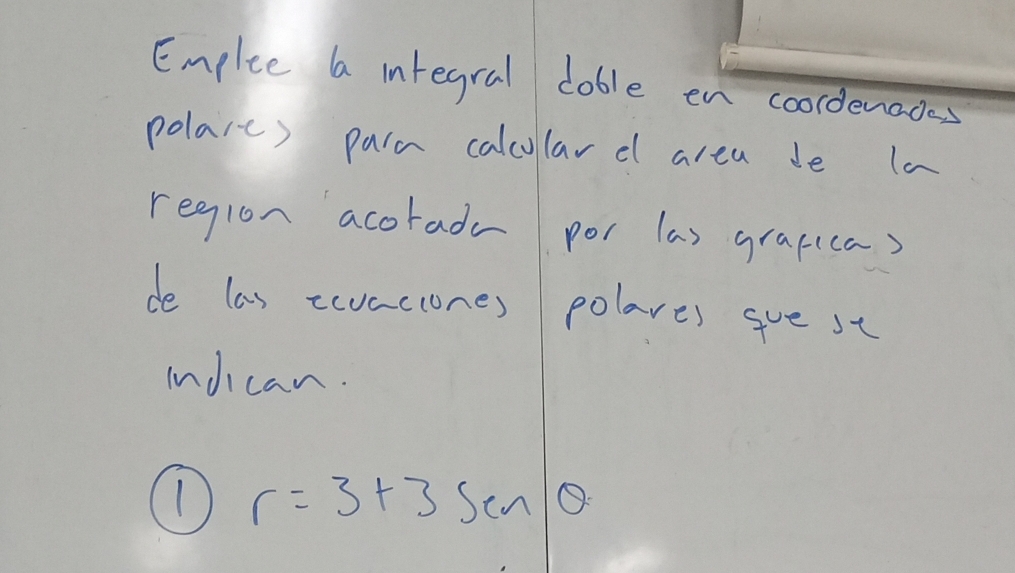 Emplee la integral doble en coordenadas
polares para calcular el area de la
region acotada por las graficas
de las ecuaciones polares que se
indican.
① r = 3 + 3 Sen θ